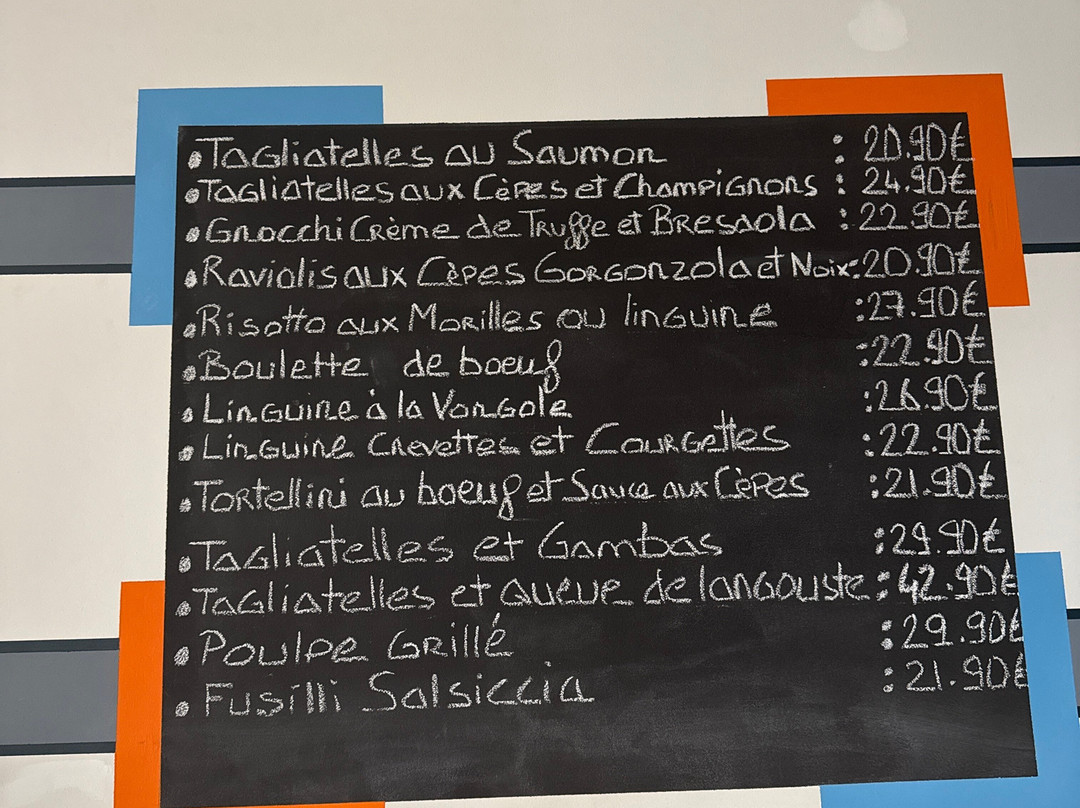 •Tagliatelles au Saumon : 20.90€
•Tagliatelles aux Cèpes et Champignons : 24.90€
•Gnocchi Crème de Truffe et Bresaola : 22.90€
•Raviolis aux Cèpes Gorgonzola et Noix: 20.90€
•Risotto aux Morilles ou linguine : 27.90€
•Boulette de boeuf : 22.90€
•Linguine à la Vongole : 26.90€
•Linguine Crevettes et Courgettes : 22.90€
•Tortellini au boeuf et Sauce aux Cèpes : 21.90€
•Tagliatelles et Gambas : 29.90€
•Tagliatelles et Queue de langouste : 42.90€
•Poulpe Grillé : 29.90€
•Fusilli Salsiccia : 21.90€